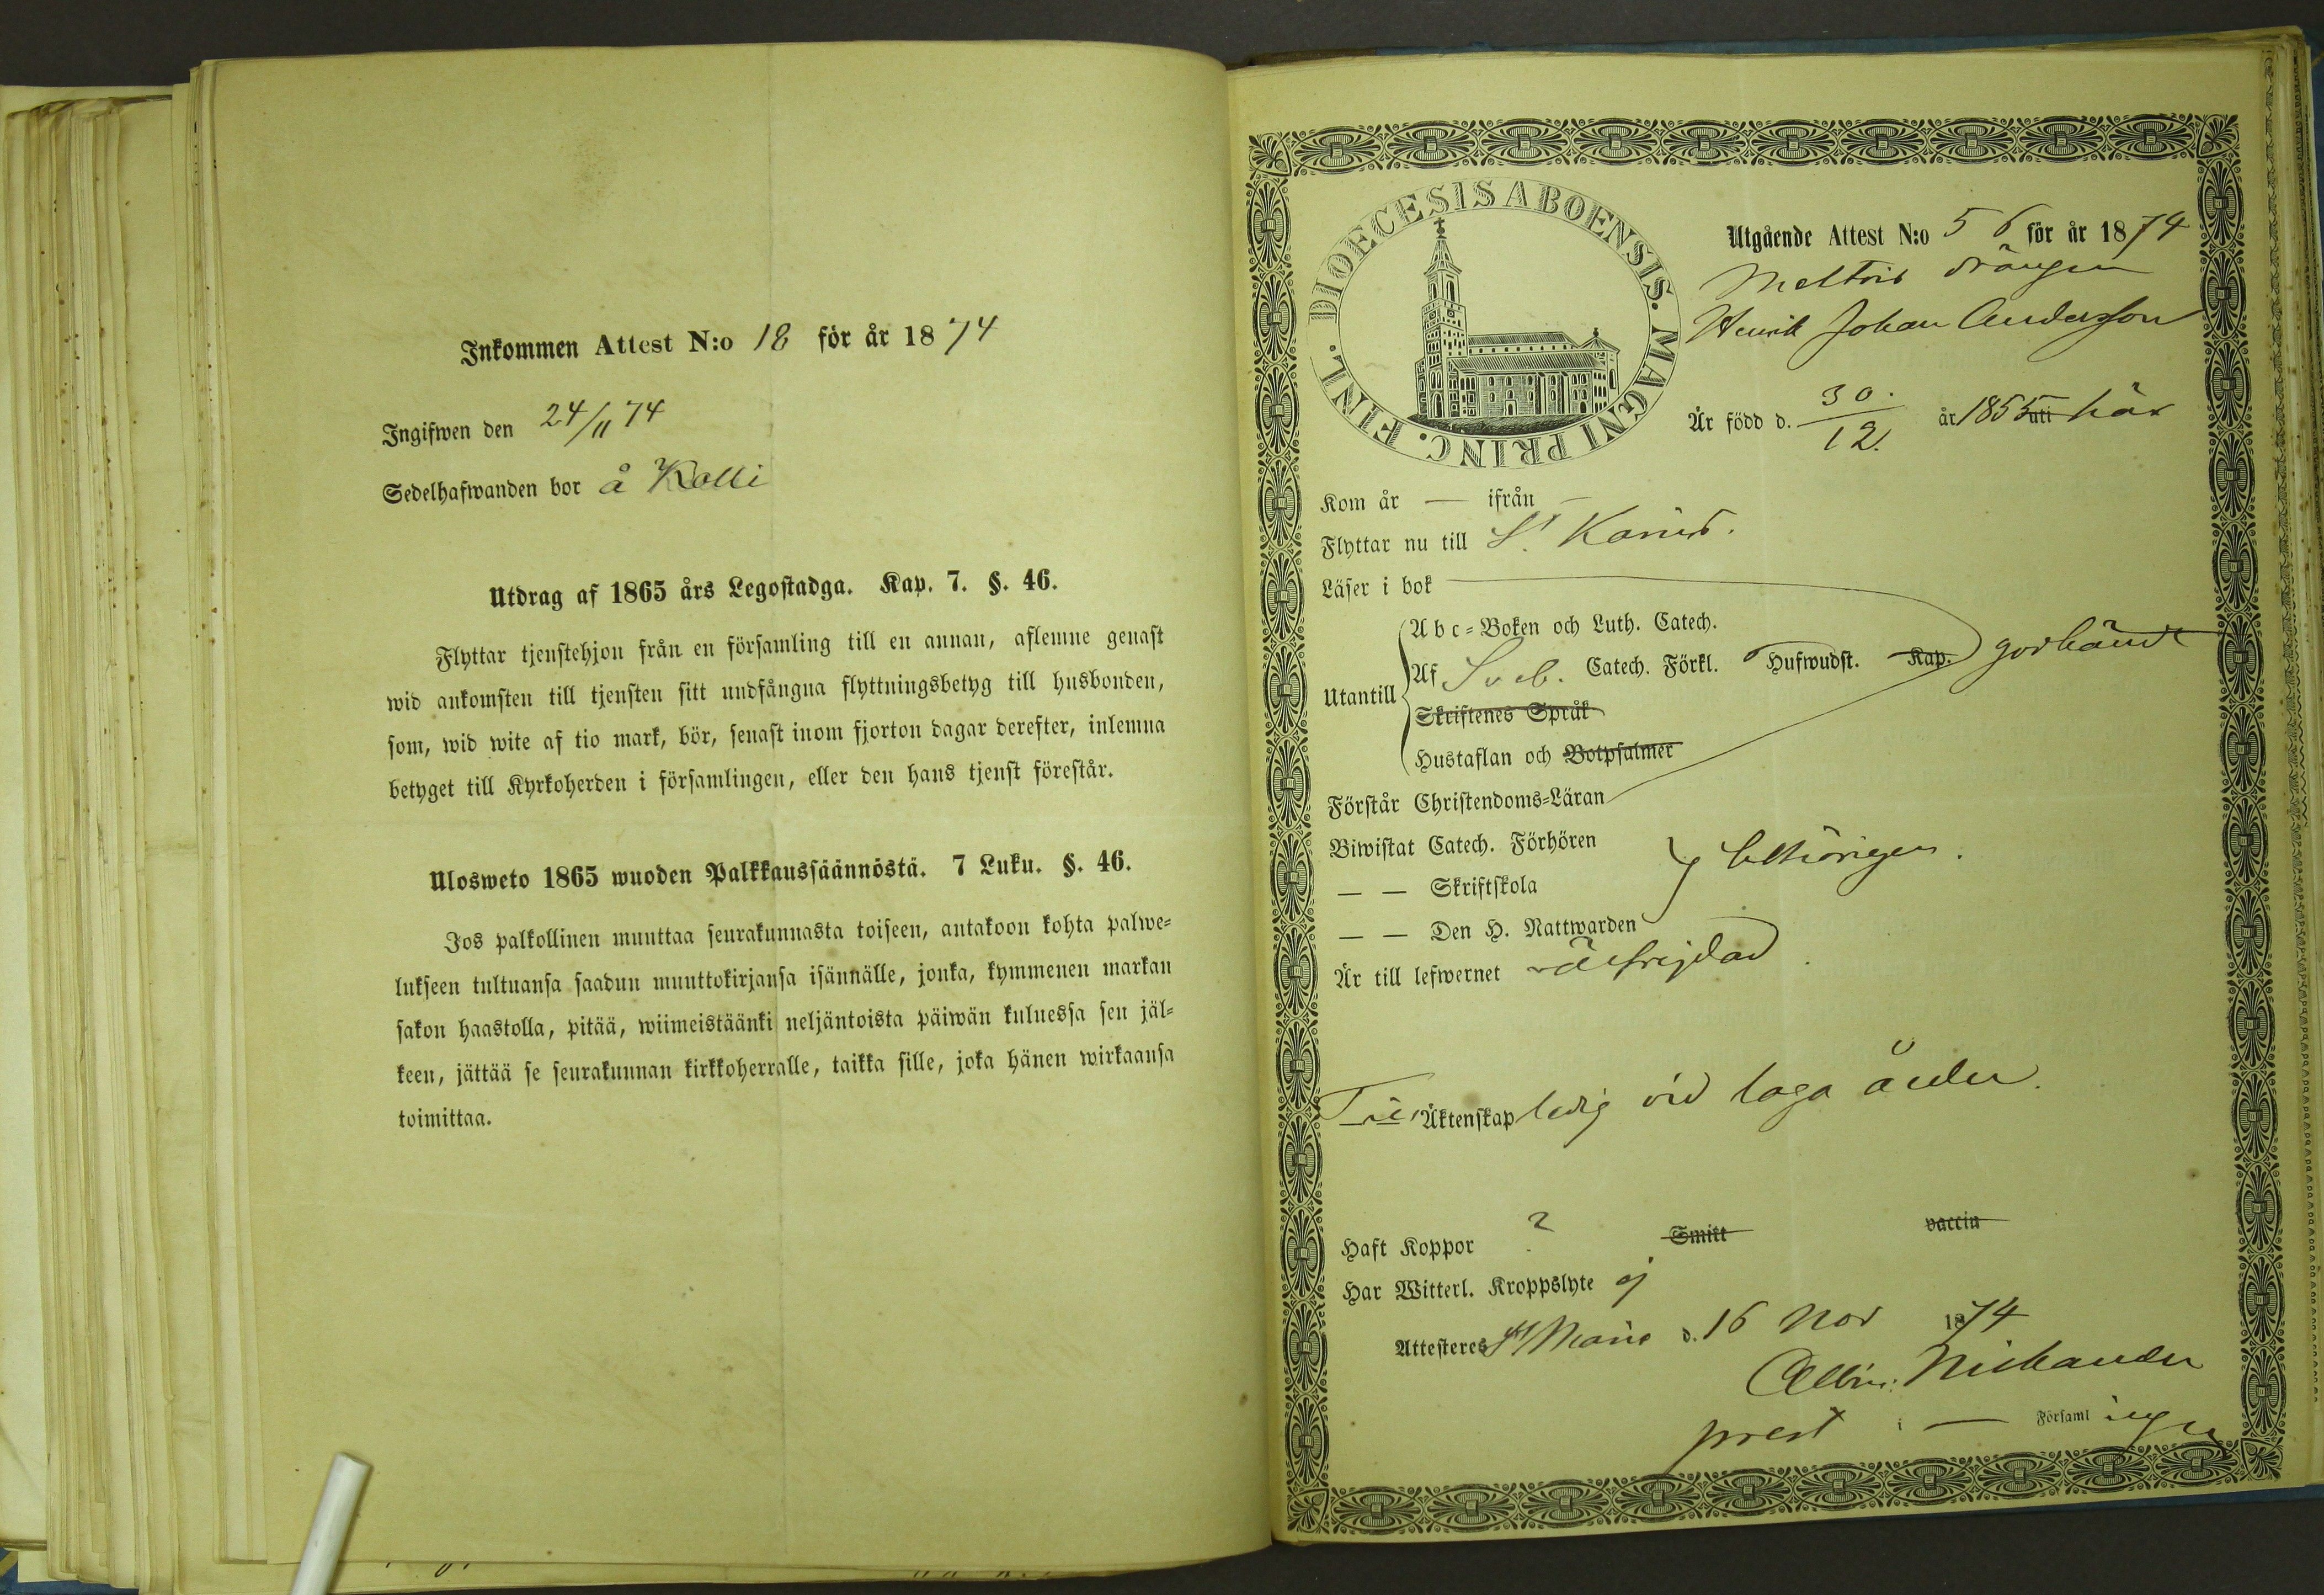 Inkommen Attest N:o 18 för år 1874
Ingifwen den 24/11 74
Sedelhafwanden bor å Kolli
Utdrag af 1865 års Legostadga. Kap. 7. §. 46.
Flyttar tjenstehjon från en församling till en annan, aflemne genast
wid ankomsten till tjensten sitt undfångna flyttningsbetyg till husbonden,
som, wid wite af tio mark, bör, senast inom fjorton dagar derefter, inlemna
betyget till Kyrkoherden i församlingen, eller den hans tjenst förestår.
Ulosweto 1865 wuoden Palkkaussäännöstä. 7 Luku. §. 46.
Jos palkollinen muuttaa seurakunnasta toiseen, antakoon kohta palwe=
lukseen tultuansa saadun muuttokirjansa isännälle, jonka, kymmenen markan
sakon haastolla, pitää, wiimeistäänki neljäntoista päiwän kuluessa sen jäl=
keen, jättää se seurakunnan kirkkoherralle, taikka sille, joka hänen wirkaansa
toimittaa.
DIOECESIS ABOENSIS. MAGNI PRINC. FINL.
Utgående Attest N:o 56 för år 1874
drängen
Henrik Johan Andersson
Är född d. 30/12. år 1855 uti här
Kom år — ifrån —
Flyttar nu till St Karins.
Läser i bok
Utantill
Abc=Boken och Luth. Catech.
Af Sveb. Catech. Förkl. Hufwudst. Kap. godkändt
Skriftenes Språk
Hustaflan och Botpsalmer
Förstår Christendoms=Läran
Biwistat Catech. Förhören
— — Skriftskola behörigen.
— — Den H. Nattwarden
Är till lefwernet väl frejdad.
Till Äktenskap ledig vid laga ålder.
Haft Koppor ? Smitt vaccin
Har Witterl. Kroppslyte ej
Attesteres St Marie d. 16 Nov 1874
Albin: Nikander
prest i — Församl ingen